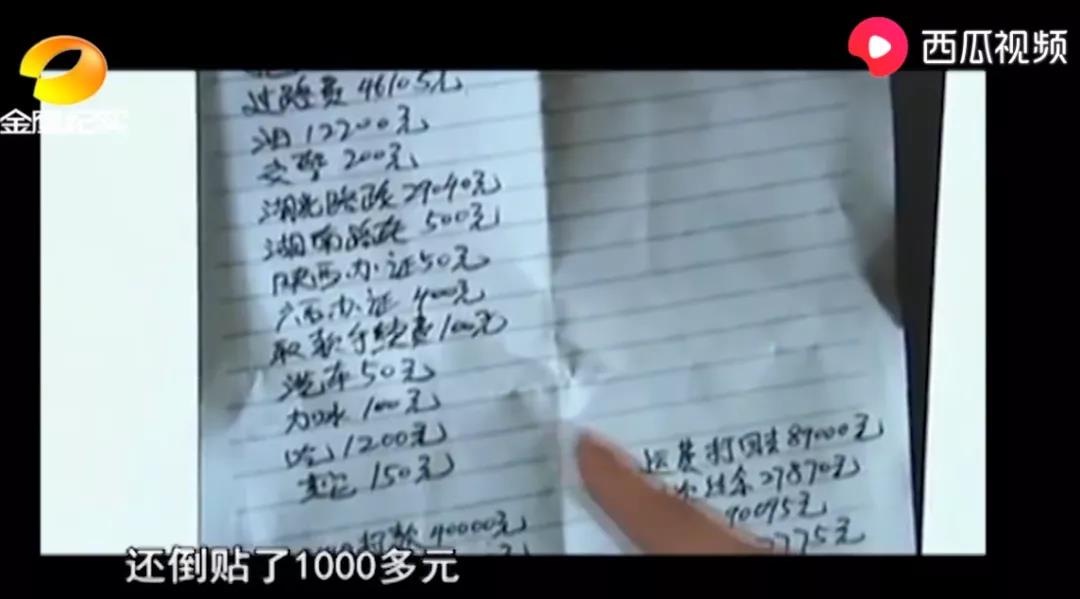 西瓜视频
金鹰纪实
过路费 46105元
油 12200元
交警 200元
湖北路政 29040元
湖南路政 500元
陕西办证50元
广西办证 400元
取款手续费100元
洗车50元
加水 100元
吃1200元
其它 150元
打款 40000元
元
运费打回来89000元
结余27870元
90095元
775元
还倒贴了1000多元